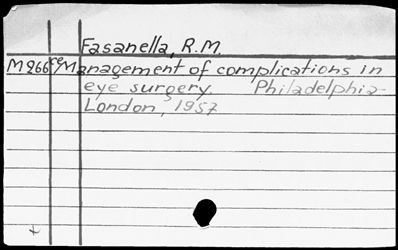 Fasanella, R.M.
M266ce Management of complications in
eye surgery. Philadelphia-
London, 1957